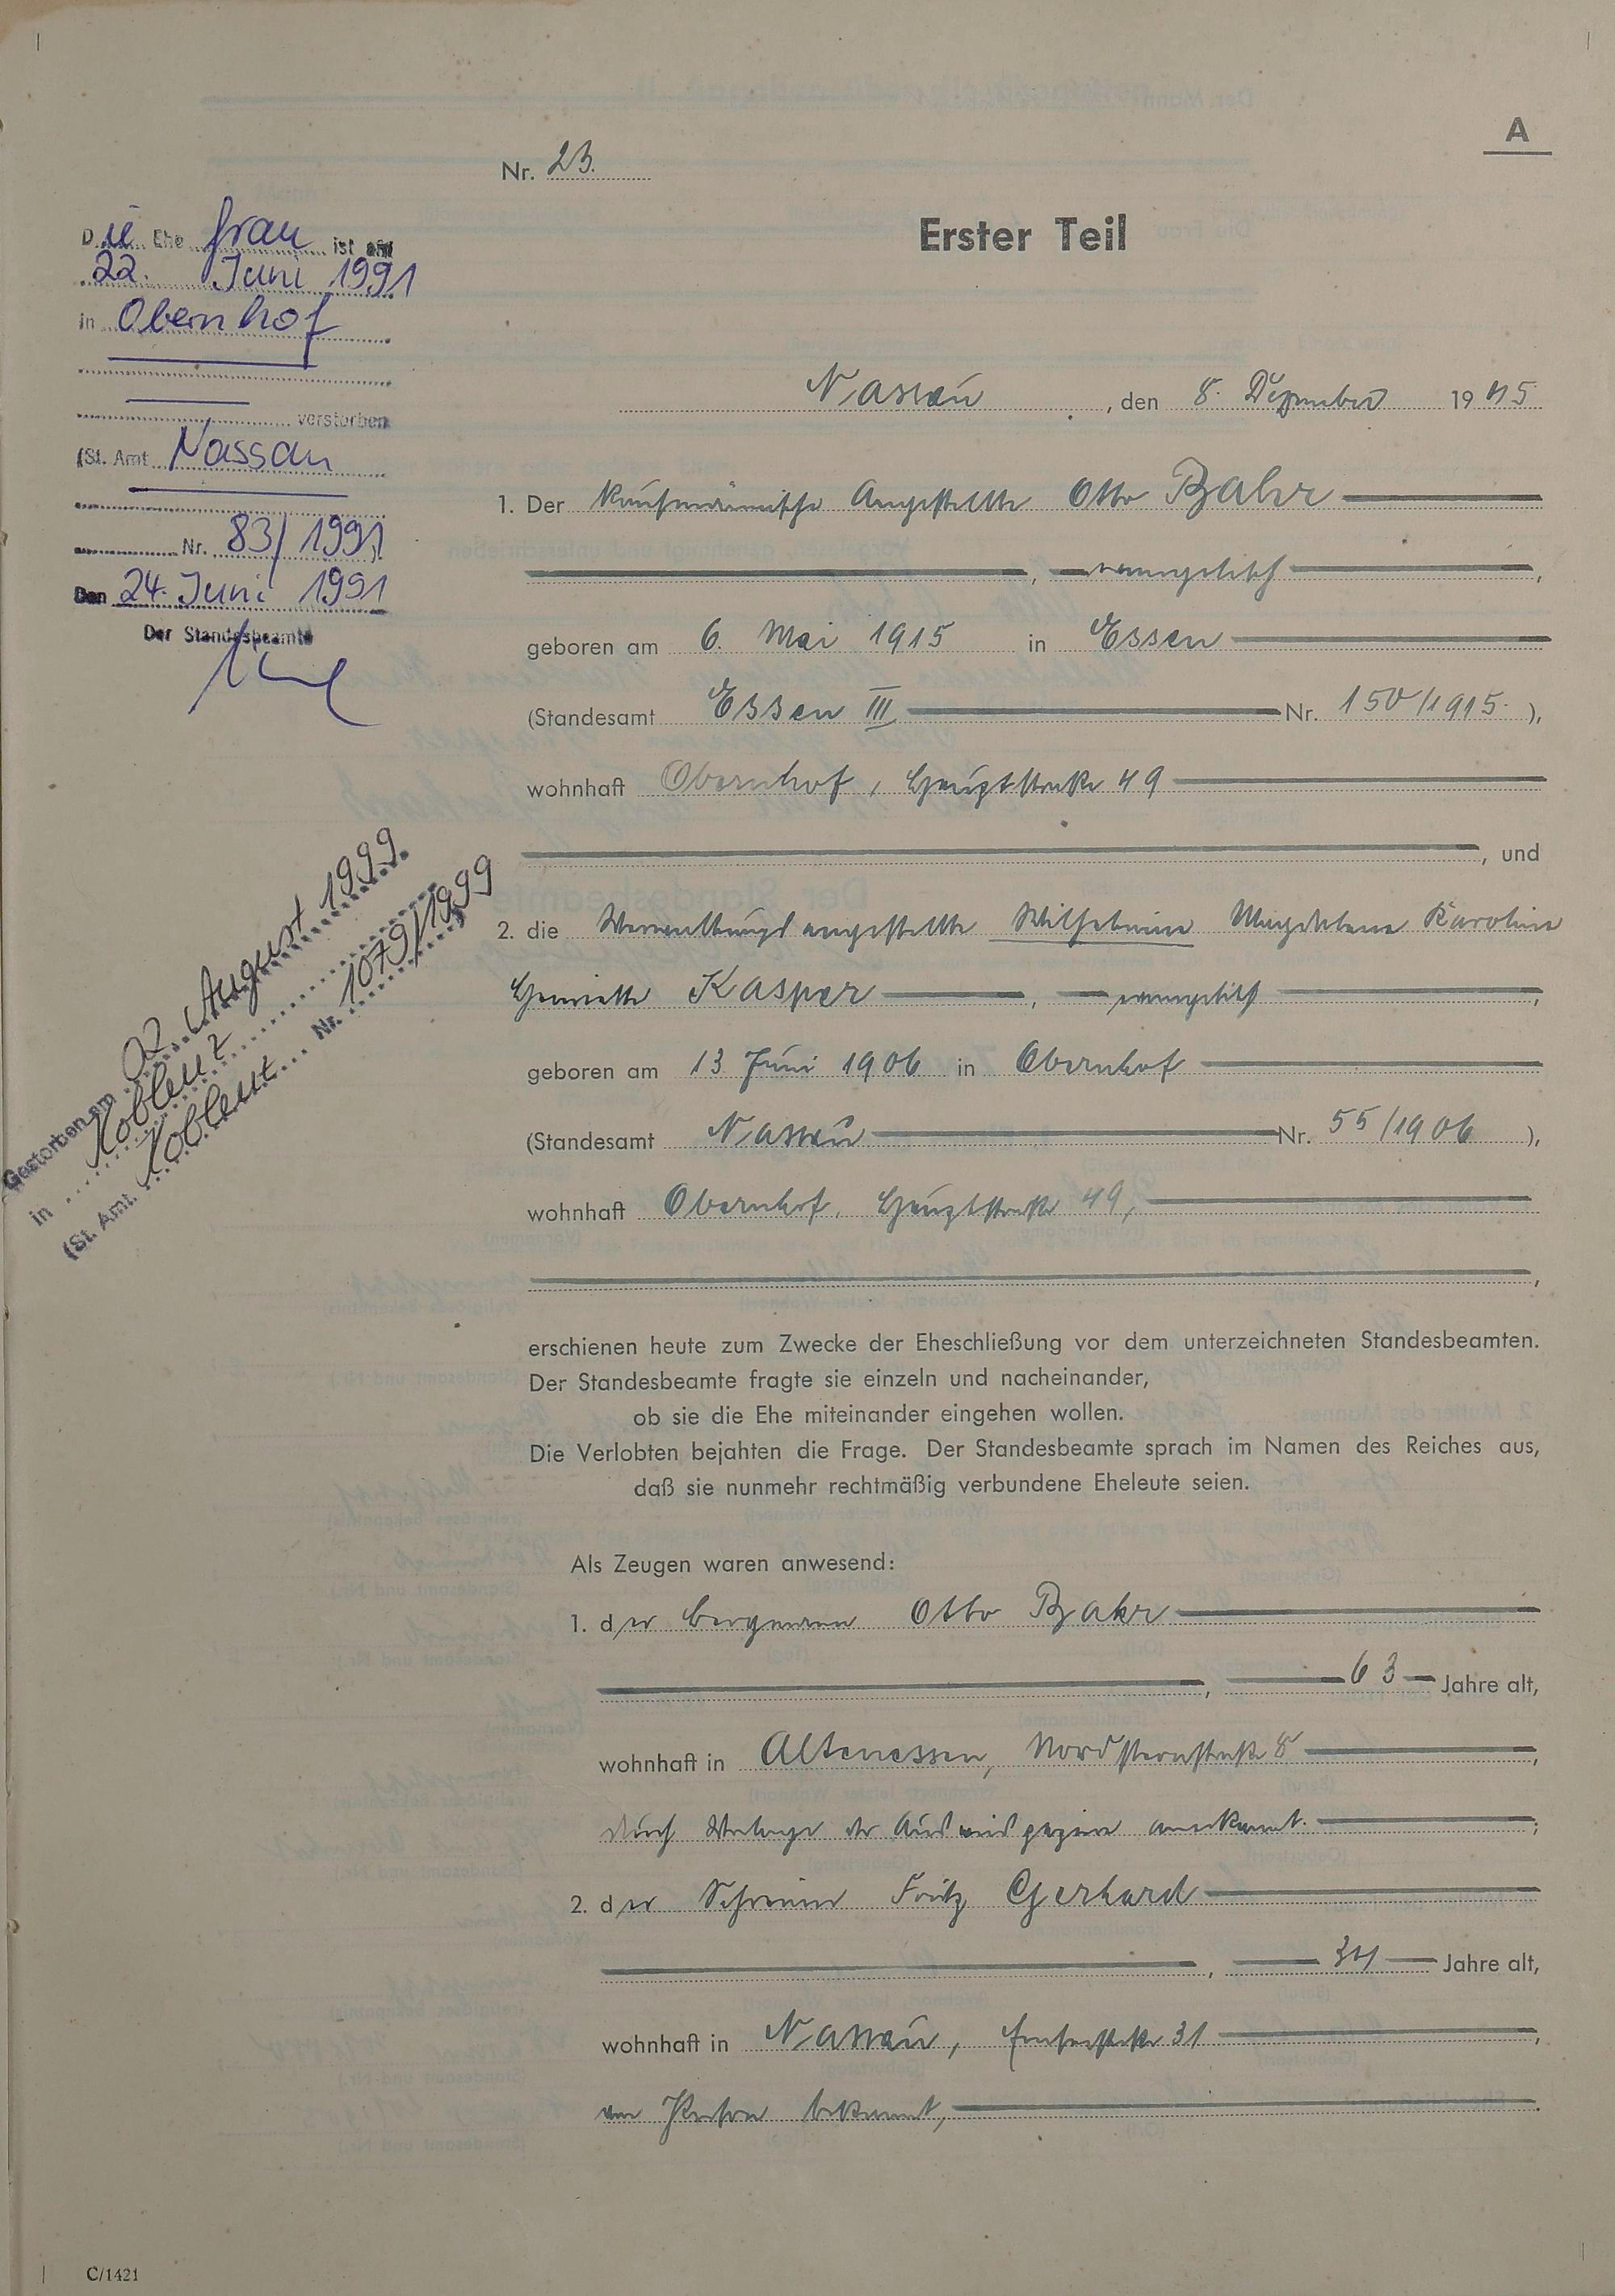 A
Nr. 23.
Erster Teil
Die Ehefrau ist am
22. Juni 1991
in Obernhof
verstorben
(St. Amt Nassau
Nr. 83/1991)
Den 24. Juni 1991
Der Standesbeamte
Gestorben am 02. August 1999.
in Koblenz
(St. Amt. Koblenz Nr. 1079/1999
Nassau, den 8. Dezember 1945
1. Der kaufmännische Angestellte Otto Bahr
, evangelisch,
geboren am 6. Mai 1915 in Essen
(Standesamt Essen III Nr. 150/1915.),
wohnhaft Obernhof, Hauptstraße 49
, und
2. die Verwaltungsangestellte Wilhelmine Magdalena Karoline
Henriette Kasper, evangelisch,
geboren am 13 Juni 1906 in Obernhof
(Standesamt Nassau Nr. 55/1906),
wohnhaft Obernhof, Hauptstraße 49,
,
erschienen heute zum Zwecke der Eheschließung vor dem unterzeichneten Standesbeamten.
Der Standesbeamte fragte sie einzeln und nacheinander,
ob sie die Ehe miteinander eingehen wollen.
Die Verlobten bejahten die Frage. Der Standesbeamte sprach im Namen des Reiches aus,
daß sie nunmehr rechtmäßig verbundene Eheleute seien.
Als Zeugen waren anwesend:
1. der Bergmann Otto Bahr
, 63 Jahre alt,
wohnhaft in Altenessen, Nordsternstraße 8,
durch Vorlage der Ausweispapiere anerkannt.;
2. der Schreiner Fritz Gerhard
, 34 Jahre alt,
wohnhaft in Nassau, Emserstraße 31,
von Person bekannt,.
C/1421